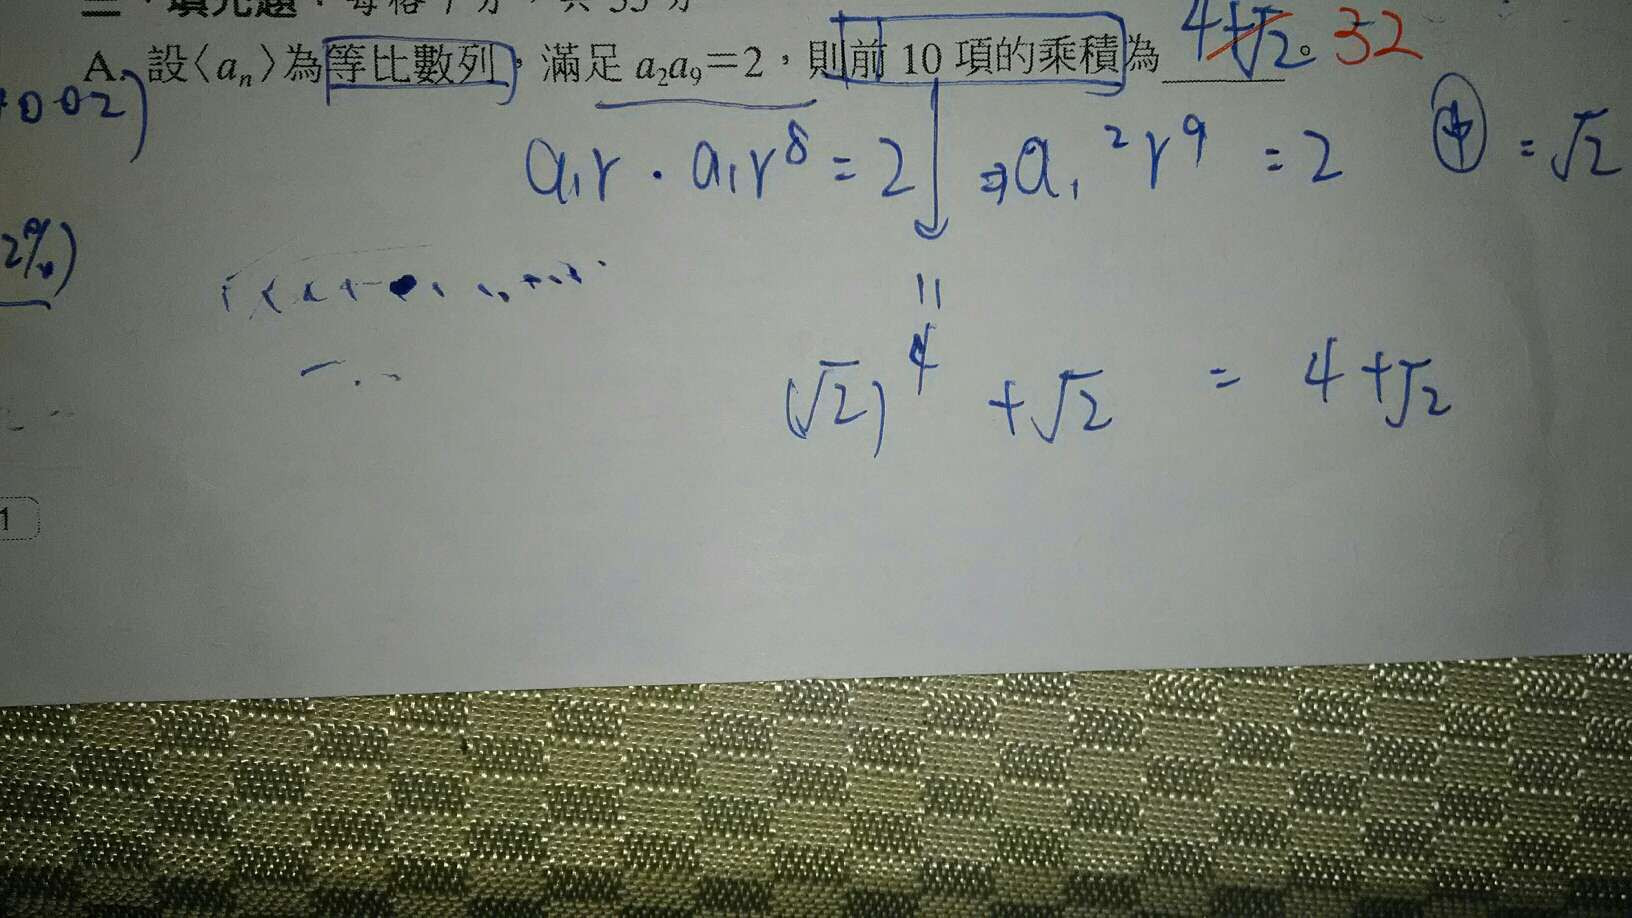 三、填充題：每格7分，共35分
A. 設⟨aₙ⟩為等比數列，滿足 a₂a₉＝2，則前 10 項的乘積為 4+√2。 32
a₁r · a₁r⁸ = 2 ⇒ a₁²r⁹ = 2 中 = √2
=
(√2)⁴ + √2 = 4+√2